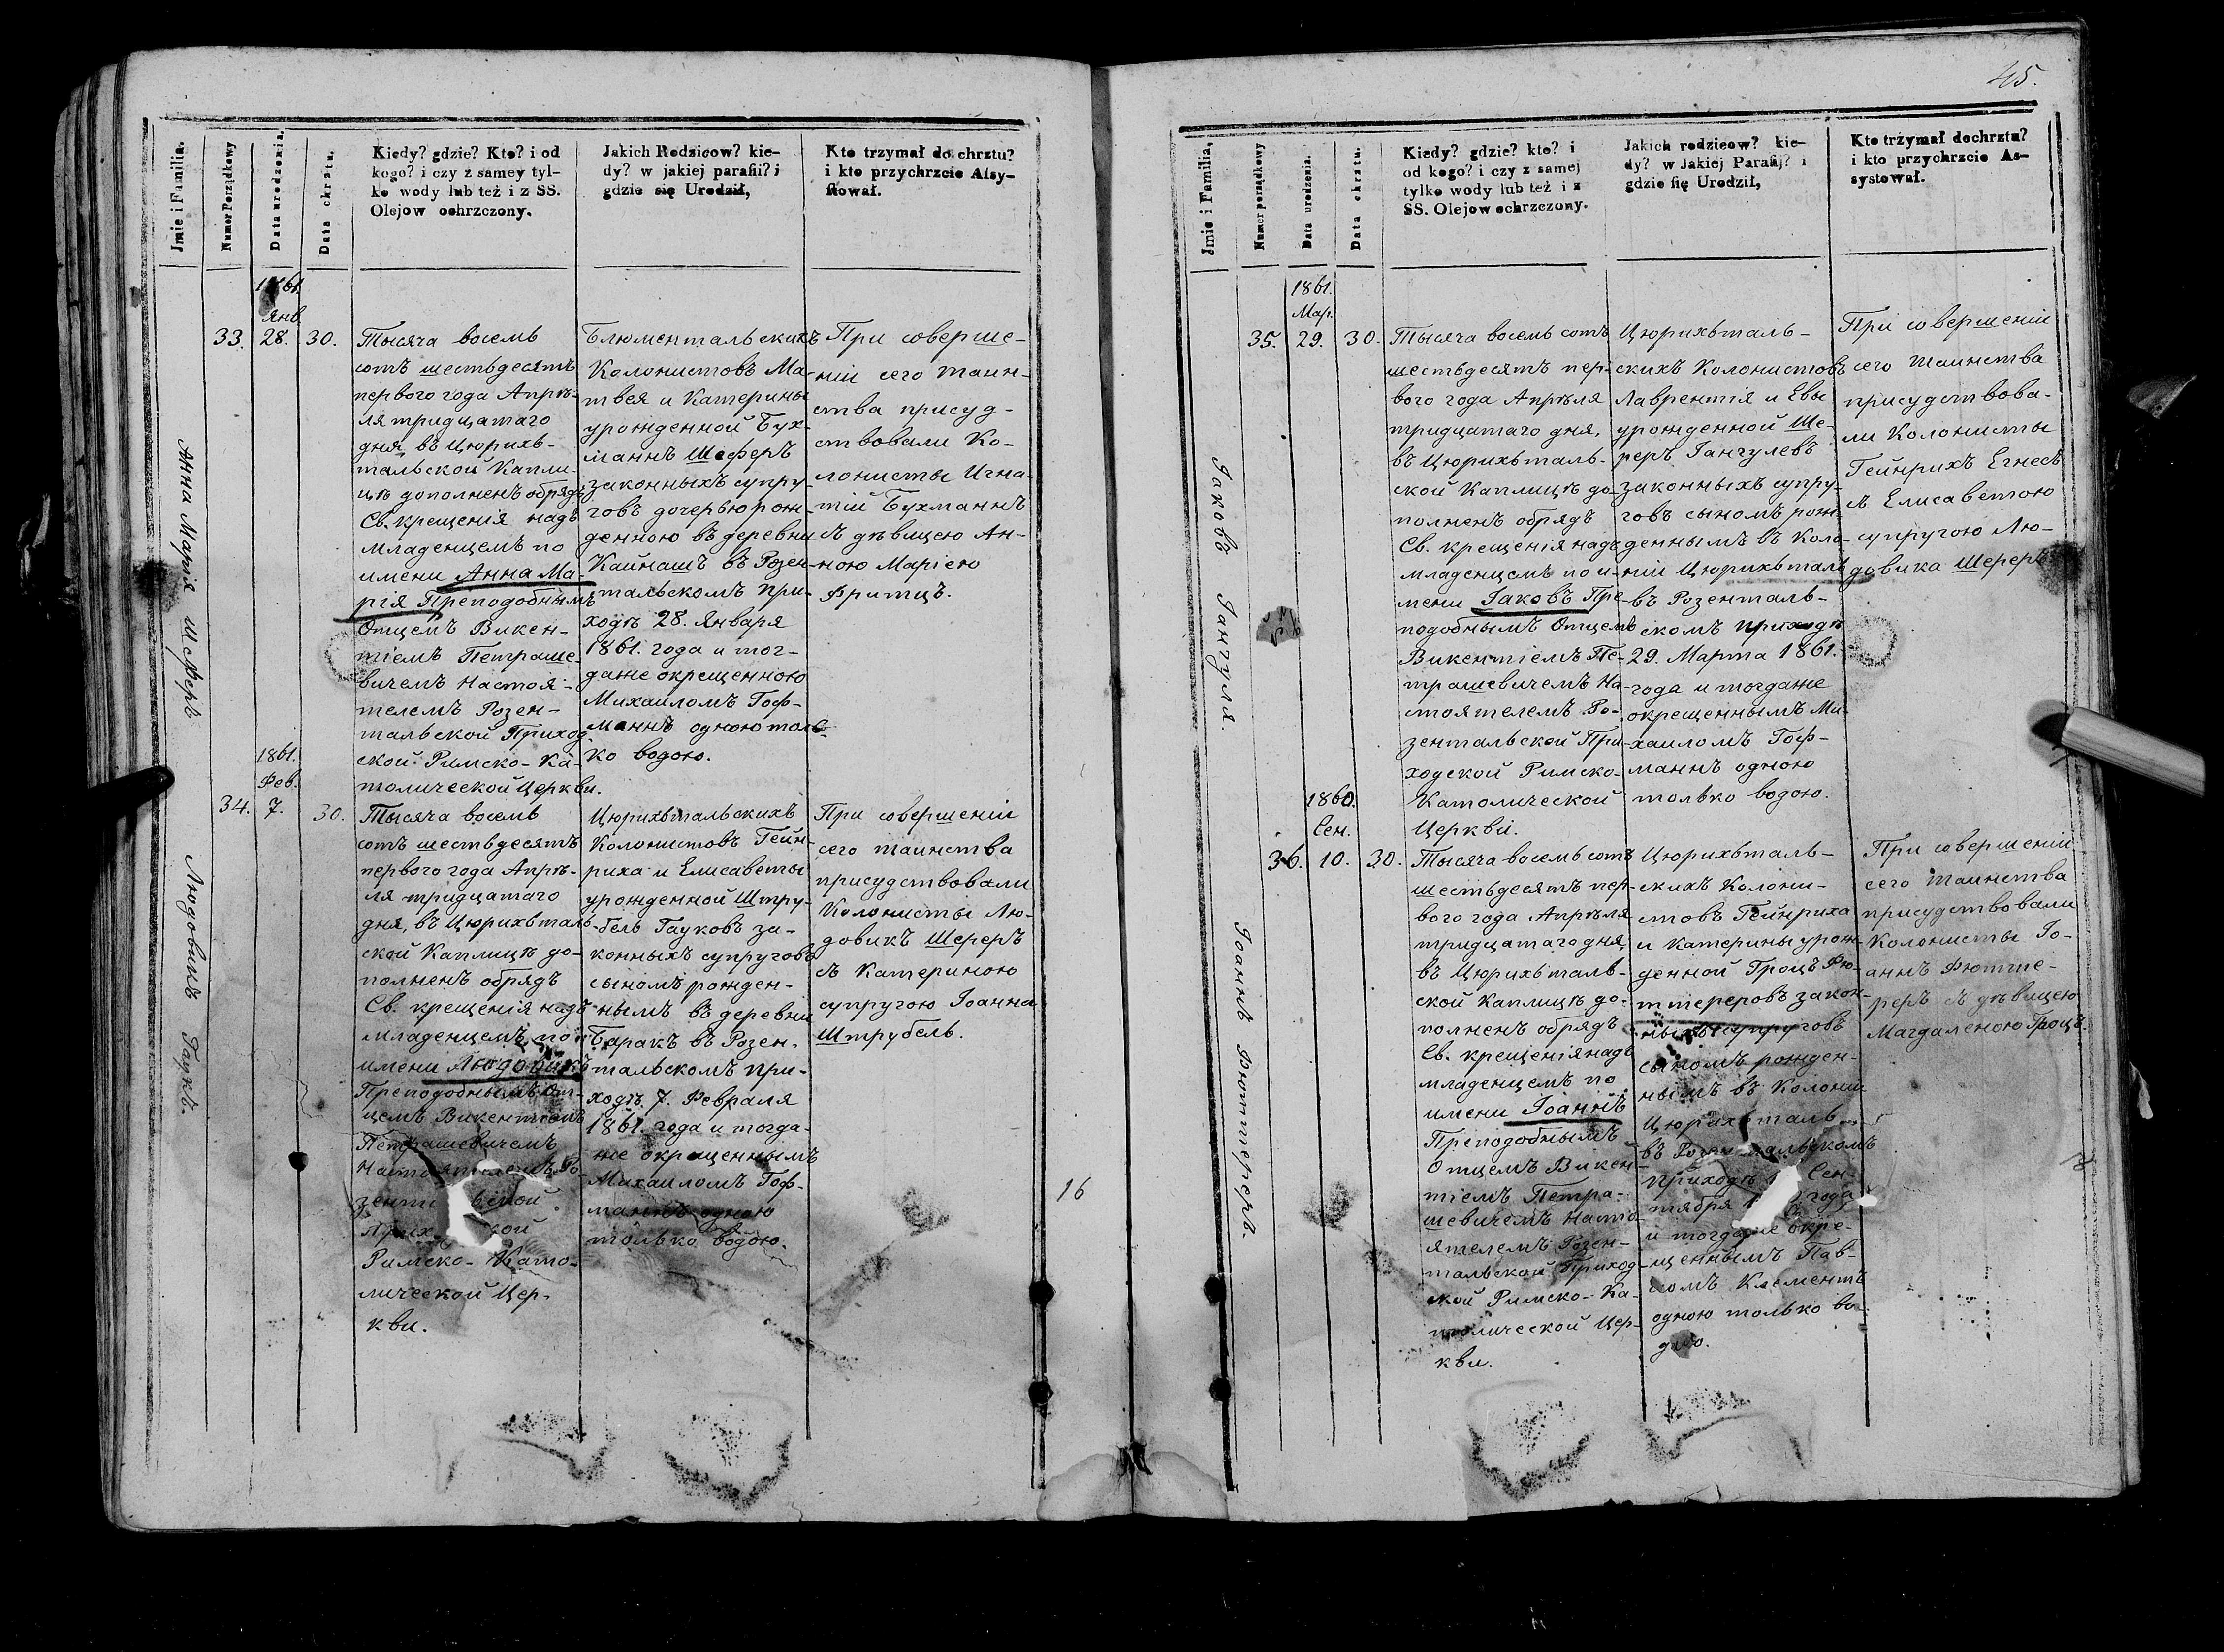 45.
Jmie i Familia.
Numer Porządkowy
Data urodzenia.
Data chrztu.
Kiedy? gdzie? Kto? i od
kogo? i czy z samey tyl-
ko wody lub też i z SS.
Olejow ochrzczony.
Jakich Rodzicow? kie-
dy? w jakiej parafii? i
gdzie się Urodził,
Kto trzymał do chrztu?
i kto przychrzcie Assy-
stował.
Анна Марія Шеферъ
1861.
Янв.
33. 28. 30.
Тысяча восемь
сотъ шестьдесятъ
перваго года Апрѣ-
ля тридцатаго
дня, въ Цюрихъ-
тальской Капли-
цѣ дополненъ обрядъ
Св. крещенія надъ
младенцемъ по
имени Анна Ма-
рія Преподобнымъ
Отцемъ Викен-
тіемъ Петраше-
вичемъ Настоя-
телемъ Розен-
тальской Приход-
ской Римско-Ка-
толической Церкви.
Блюментальскихъ
Колонистовъ Ма-
твея и Катерины
урожденной Бух-
маннъ Шеферъ
законныхъ супру-
говъ дочерью рож-
денною въ деревни
Кайнашъ въ Розен-
тальскомъ при-
ходѣ 28. Января
1861. года и тог-
даже окрещенною
Михаиломъ Гоф-
маннъ одною толь-
ко водою.
При соверше-
ніи сего таин-
ства присуд-
ствовали Ко-
лонисты Игна-
тій Бухманнъ
съ дѣвицею Ан-
ною Маріею
Фритцъ.
Людовикъ Гаукъ.
1861.
Фев.
34. 7. 30.
Тысяча восемь
сотъ шестьдесятъ
перваго года Апрѣ-
ля тридцатаго
дня, въ Цюрихталь-
ской Каплицѣ до-
полненъ обрядъ
Св. крещенія надъ
младенцемъ по
имени Людовикъ
Преподобнымъ От-
цемъ Викентіемъ
Петрашевичемъ
Настоятелемъ Ро-
Римско-Като-
лической Цер-
кви.
Цюрихтальскихъ
Колонистовъ Гейн-
риха и Елисаветы
урожденной Штру-
бель Гауковъ за-
конныхъ супруговъ
сыномъ рожден-
нымъ въ деревни
Баракъ въ Розен-
тальскомъ при-
ходѣ 7. Февраля
1861. года и тогда-
же окрещеннымъ
Михаиломъ Гоф-
маннъ одною
только водою.
При совершеніи
сего таинства
присудствовали
Колонисты Лю-
довикъ Шереръ
съ Катериною
супругою Іоанна
Штрубель.
16
Jmie i Familia,
Numer porządkowy
Data urodzenia.
Data chrztu.
Kiedy? gdzie? kto? i
od kogo? i czy z samej
tylko wody lub też i z
SS. Olejow ochrzczony.
Jakich rodzicow? kie-
dy? w Jakiej Parafij? i
gdzie się Urodził,
Kto trzymał dochrztu?
i kto przychrzcie As-
systował.
Іаковъ Іангуля.
1861.
Мар.
35. 29. 30.
Тысяча восемь сотъ
шестьдесятъ пер-
вого года Апрѣля
тридцатаго дня,
въ Цюрихталь-
ской Каплицѣ до-
полненъ обрядъ
Св. крещенія надъ
младенцемъ по и-
мени Іаковъ Пре-
подобнымъ Отцемъ
Викентіемъ Пе-
трашевичемъ На-
стоятелемъ Ро-
зентальской При-
ходской Римско-
Католической
Церкви.
Цюрихталь-
скихъ Колонистовъ
Лаврентія и Евы
урожденной Ше-
реръ Іангулевъ
законныхъ супру-
говъ сыномъ рож-
деннымъ въ Коло-
ніи Цюрихталь
въ Розенталь-
скомъ приходѣ
29. Марта 1861.
года и тогдаже
окрещеннымъ Ми-
хаиломъ Гоф-
маннъ одною
только водою.
При совершеніи
сего таинства
присудствова-
ли Колонисты
Гейнрихъ Егнесъ
съ Елисаветою
супругою Лю-
довика Шереръ
Іоаннъ Фюттереръ.
1860.
Сен.
36. 10. 30.
Тысяча восемь сотъ
шестьдесятъ пер-
вого года Апрѣля
тридцатаго дня,
въ Цюрихталь-
ской Каплицѣ до-
полненъ обрядъ
Св. крещенія надъ
младенцемъ по
имени Іоаннъ
Преподобнымъ
Отцемъ Викен-
тіемъ Петра-
шевичемъ Насто-
ятелемъ Розен-
тальской Приход-
ской Римско-Ка-
толической Цер-
кви.
Цюрихталь-
скихъ Колони-
стовъ Гейнриха
и Катерины урож-
денной Гроцъ Фю-
ттереровъ закон-
ныхъ супруговъ
сыномъ рожден-
нымъ въ Колоніи
Цюрихталь
въ Розентальскомъ
приходѣ Сен-
тября года
и тогдаже окре-
щеннымъ Пав-
ломъ Клементъ
одною только во-
дою.
При совершеніи
сего таинства
присудствовали
Колонисты Іо-
аннъ Фютте-
реръ съ дѣвицею
Магдаленою Гроцъ.